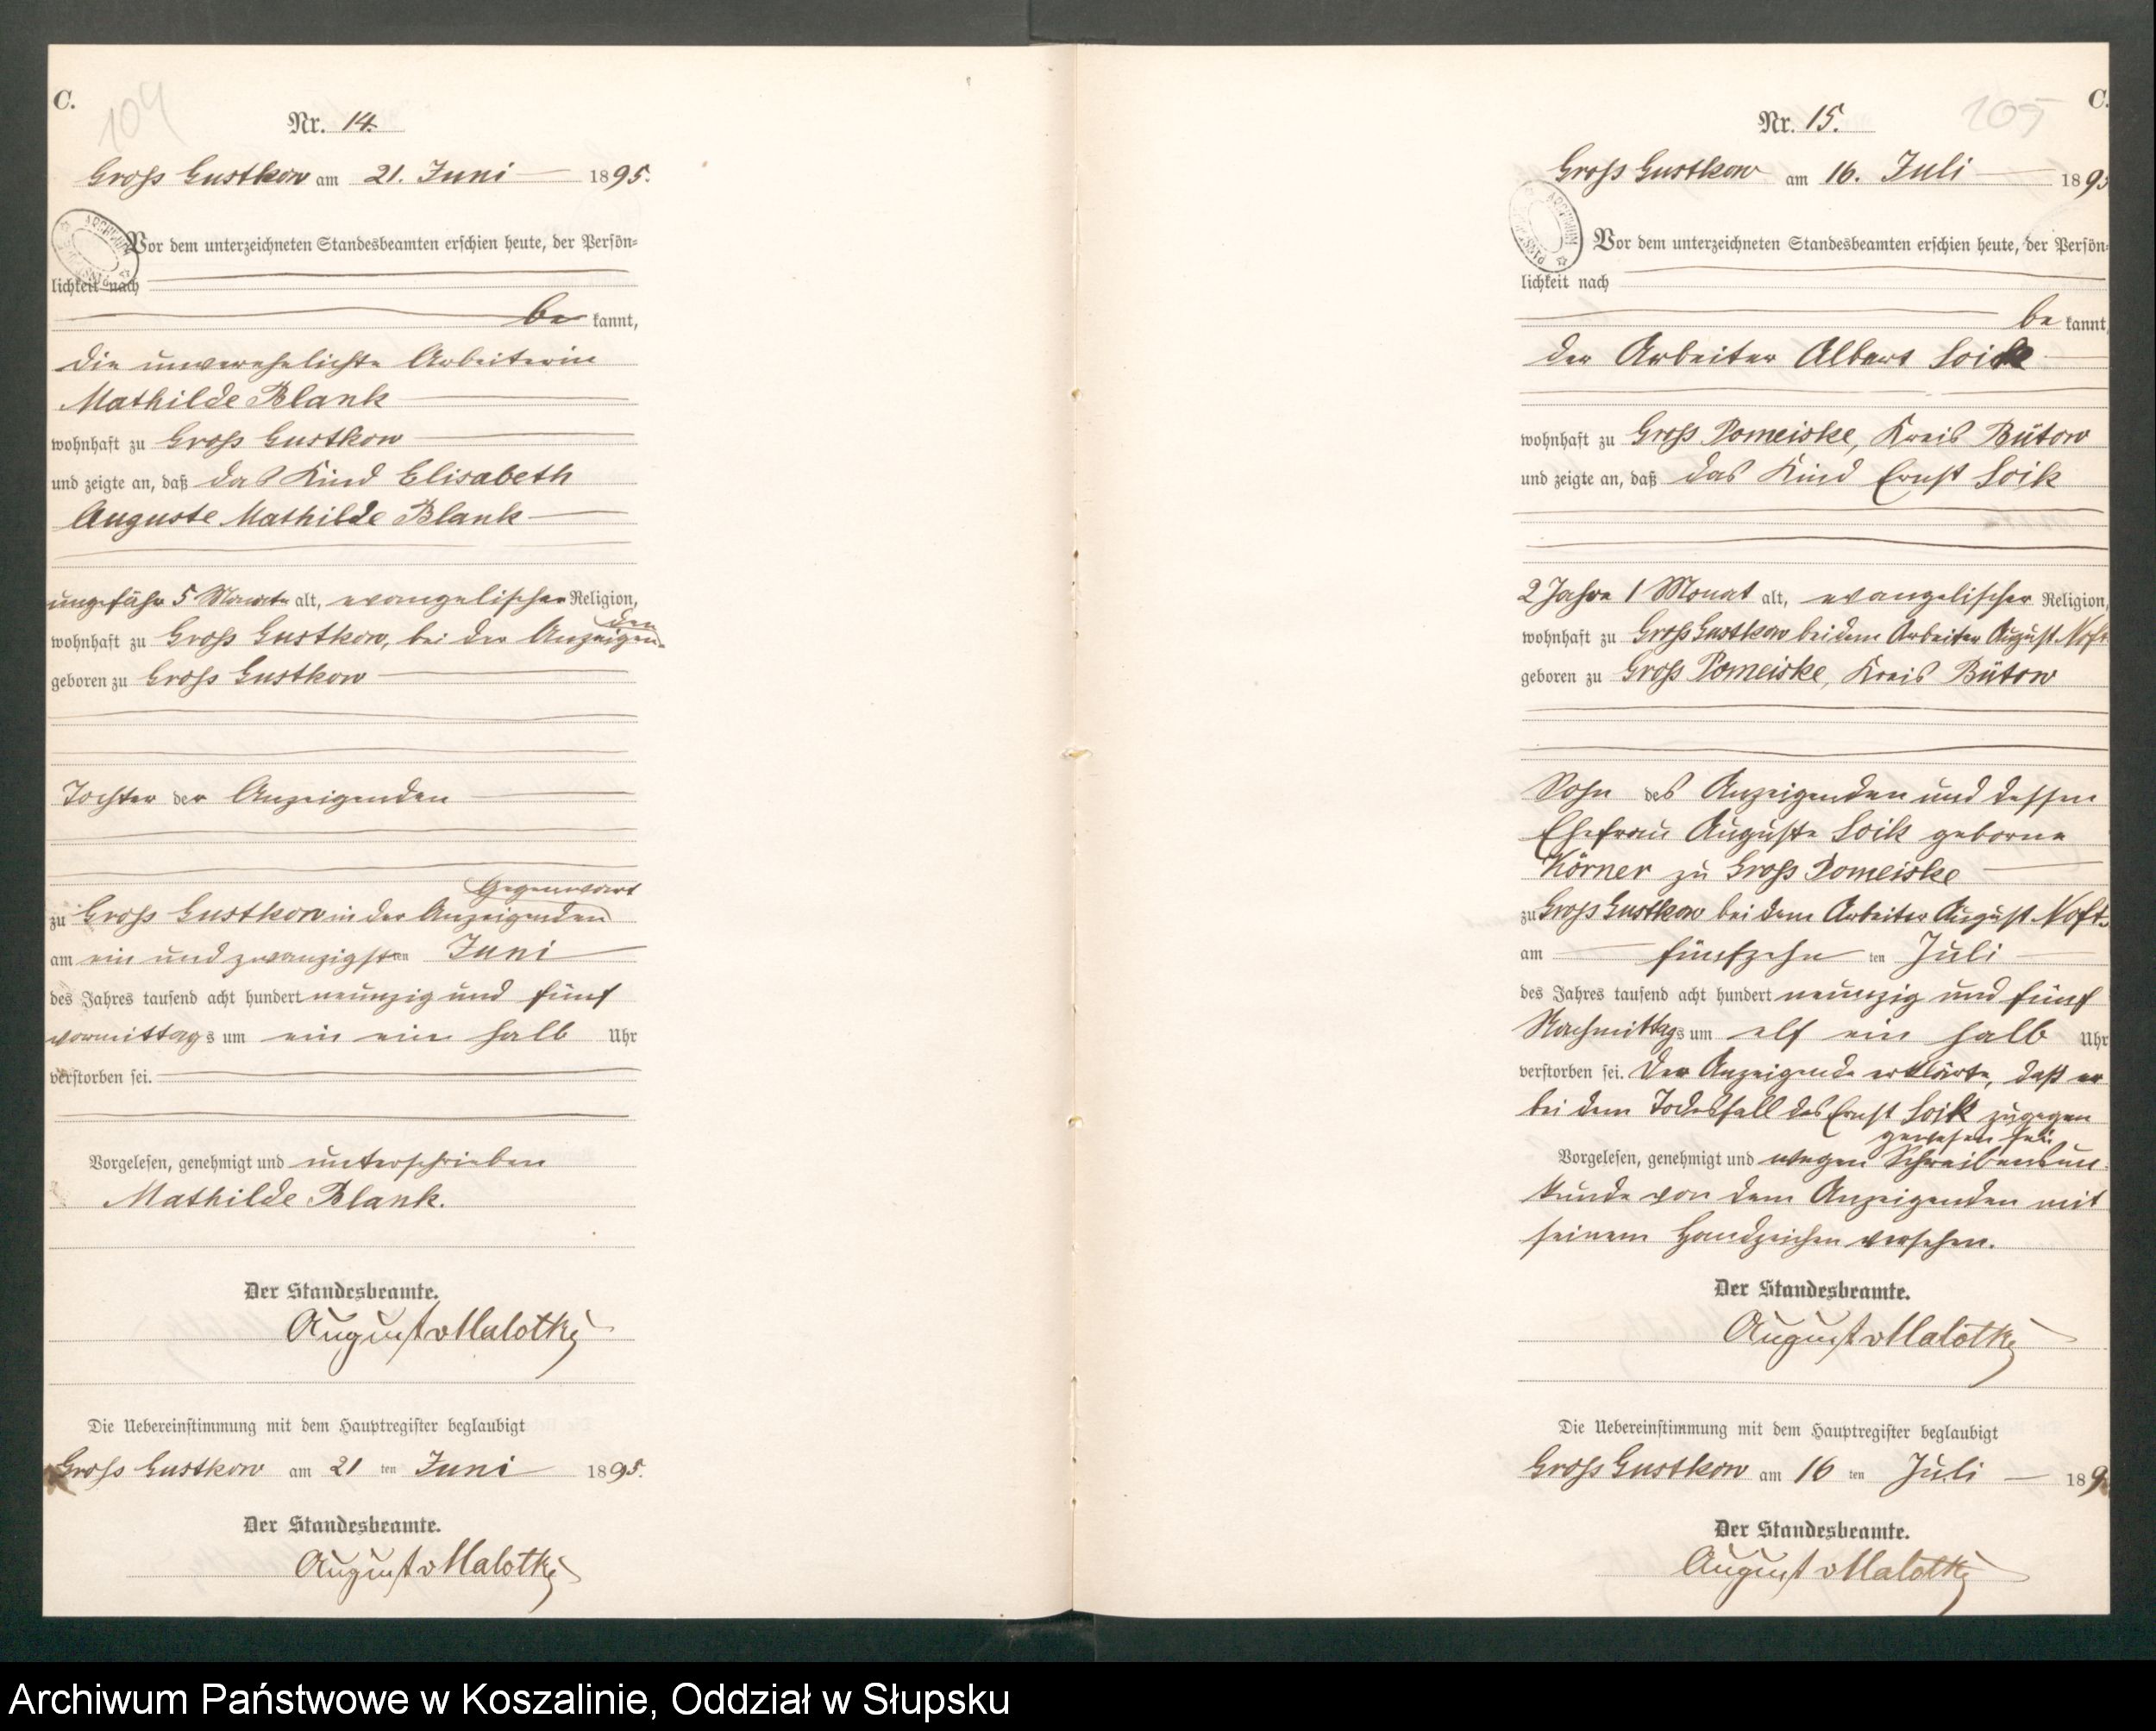 C.
104
Nr. 14.
Gross Gustkow am 21. Juni 1895.
Vor dem unterzeichneten Standesbeamten erschien heute, der Persön=
lichkeit nach
be kannt,
die unverehelichte Arbeiterin
Mathilde Blank
wohnhaft zu Gross Gustkow
und zeigte an, daß das Kind Elisabeth
Auguste Mathilde Blank
ungefähr 5 Monate alt, evangelischer Religion,
wohnhaft zu Gross Gustkow, bei der Anzeigen-
den
geboren zu Gross Gustkow
Tochter der Anzeigenden
Gegenwart
zu Gross Gustkow in der Anzeigenden
am ein und zwanzigsten Juni
des Jahres tausend acht hundert neunzig und fünf
vormittags um ein ein halb Uhr
verstorben sei.
Vorgelesen, genehmigt und unterschrieben
Mathilde Blank.
Der Standesbeamte.
August v Malottky
Die Uebereinstimmung mit dem Hauptregister beglaubigt
Gross Gustkow am 21 ten Juni 1895.
Der Standesbeamte.
August v Malottky
C.
105
Nr. 15.
Gross Gustkow am 16. Juli 189
ARCHIWUM
Vor dem unterzeichneten Standesbeamten erschien heute, der Persön=
lichkeit nach
be kannt,
der Arbeiter Albert Loik
wohnhaft zu Gross Pomeiske, Kreis Bütow
und zeigte an, daß das Kind Ernst Loik
2 Jahre 1 Monat alt, evangelischer Religion,
wohnhaft zu Gross Gustkow bei dem Arbeiter August
geboren zu Gross Pomeiske, Kreis Bütow
Sohn des Anzeigenden und dessen
Ehefrau Auguste Loik geborne
Körner zu Gross Pomeiske
zu Gross Gustkow bei dem Arbeiter August
am fünfzehn ten Juli
des Jahres tausend acht hundert neunzig und fünf
Nachmittags um elf ein halb Uhr
verstorben sei. Der Anzeigende erklärte, daß er
bei dem Todesfall des Ernst Loik zugegen
gewesen sei.
Vorgelesen, genehmigt und wegen Schreibensun-
kunde von dem Anzeigenden mit
seinem Handzeichen versehen.
Der Standesbeamte.
August v Malottky
Die Uebereinstimmung mit dem Hauptregister beglaubigt
Gross Gustkow am 16 ten Juli 189
Der Standesbeamte.
August v Malottky
Archiwum Państwowe w Koszalinie, Oddział w Słupsku